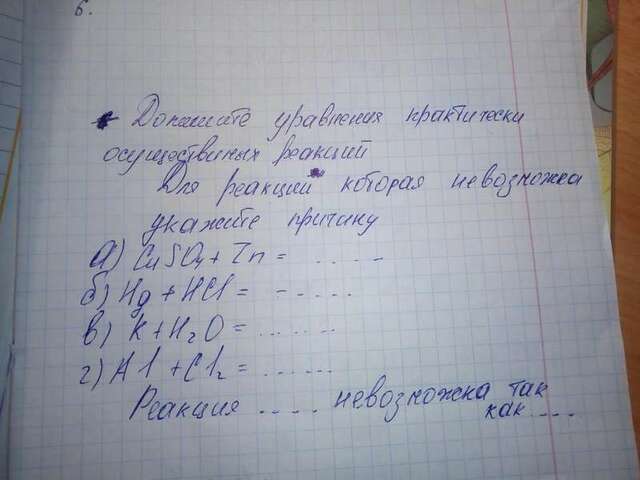 6.
Допишите уравнения практически
осуществиных реакций
Для реакции которая невозможна
укажите причину
а) CuSO₄ + Zn = .....
б) Hg + HCl = .....
в) K + H₂O = ......
г) Al + Cl₂ = ......
Реакция .... невозможна так
как ....